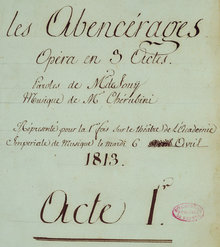 les Abencérages
Opéra en 3 Actes.
Paroles de Mr de Jouy
Musique de Mr Chérubini
Représenté pour la 1re fois sur le théâtre de l'Academie
Imperiale de Musique le mardi 6 Avril
1813.
Acte 1r